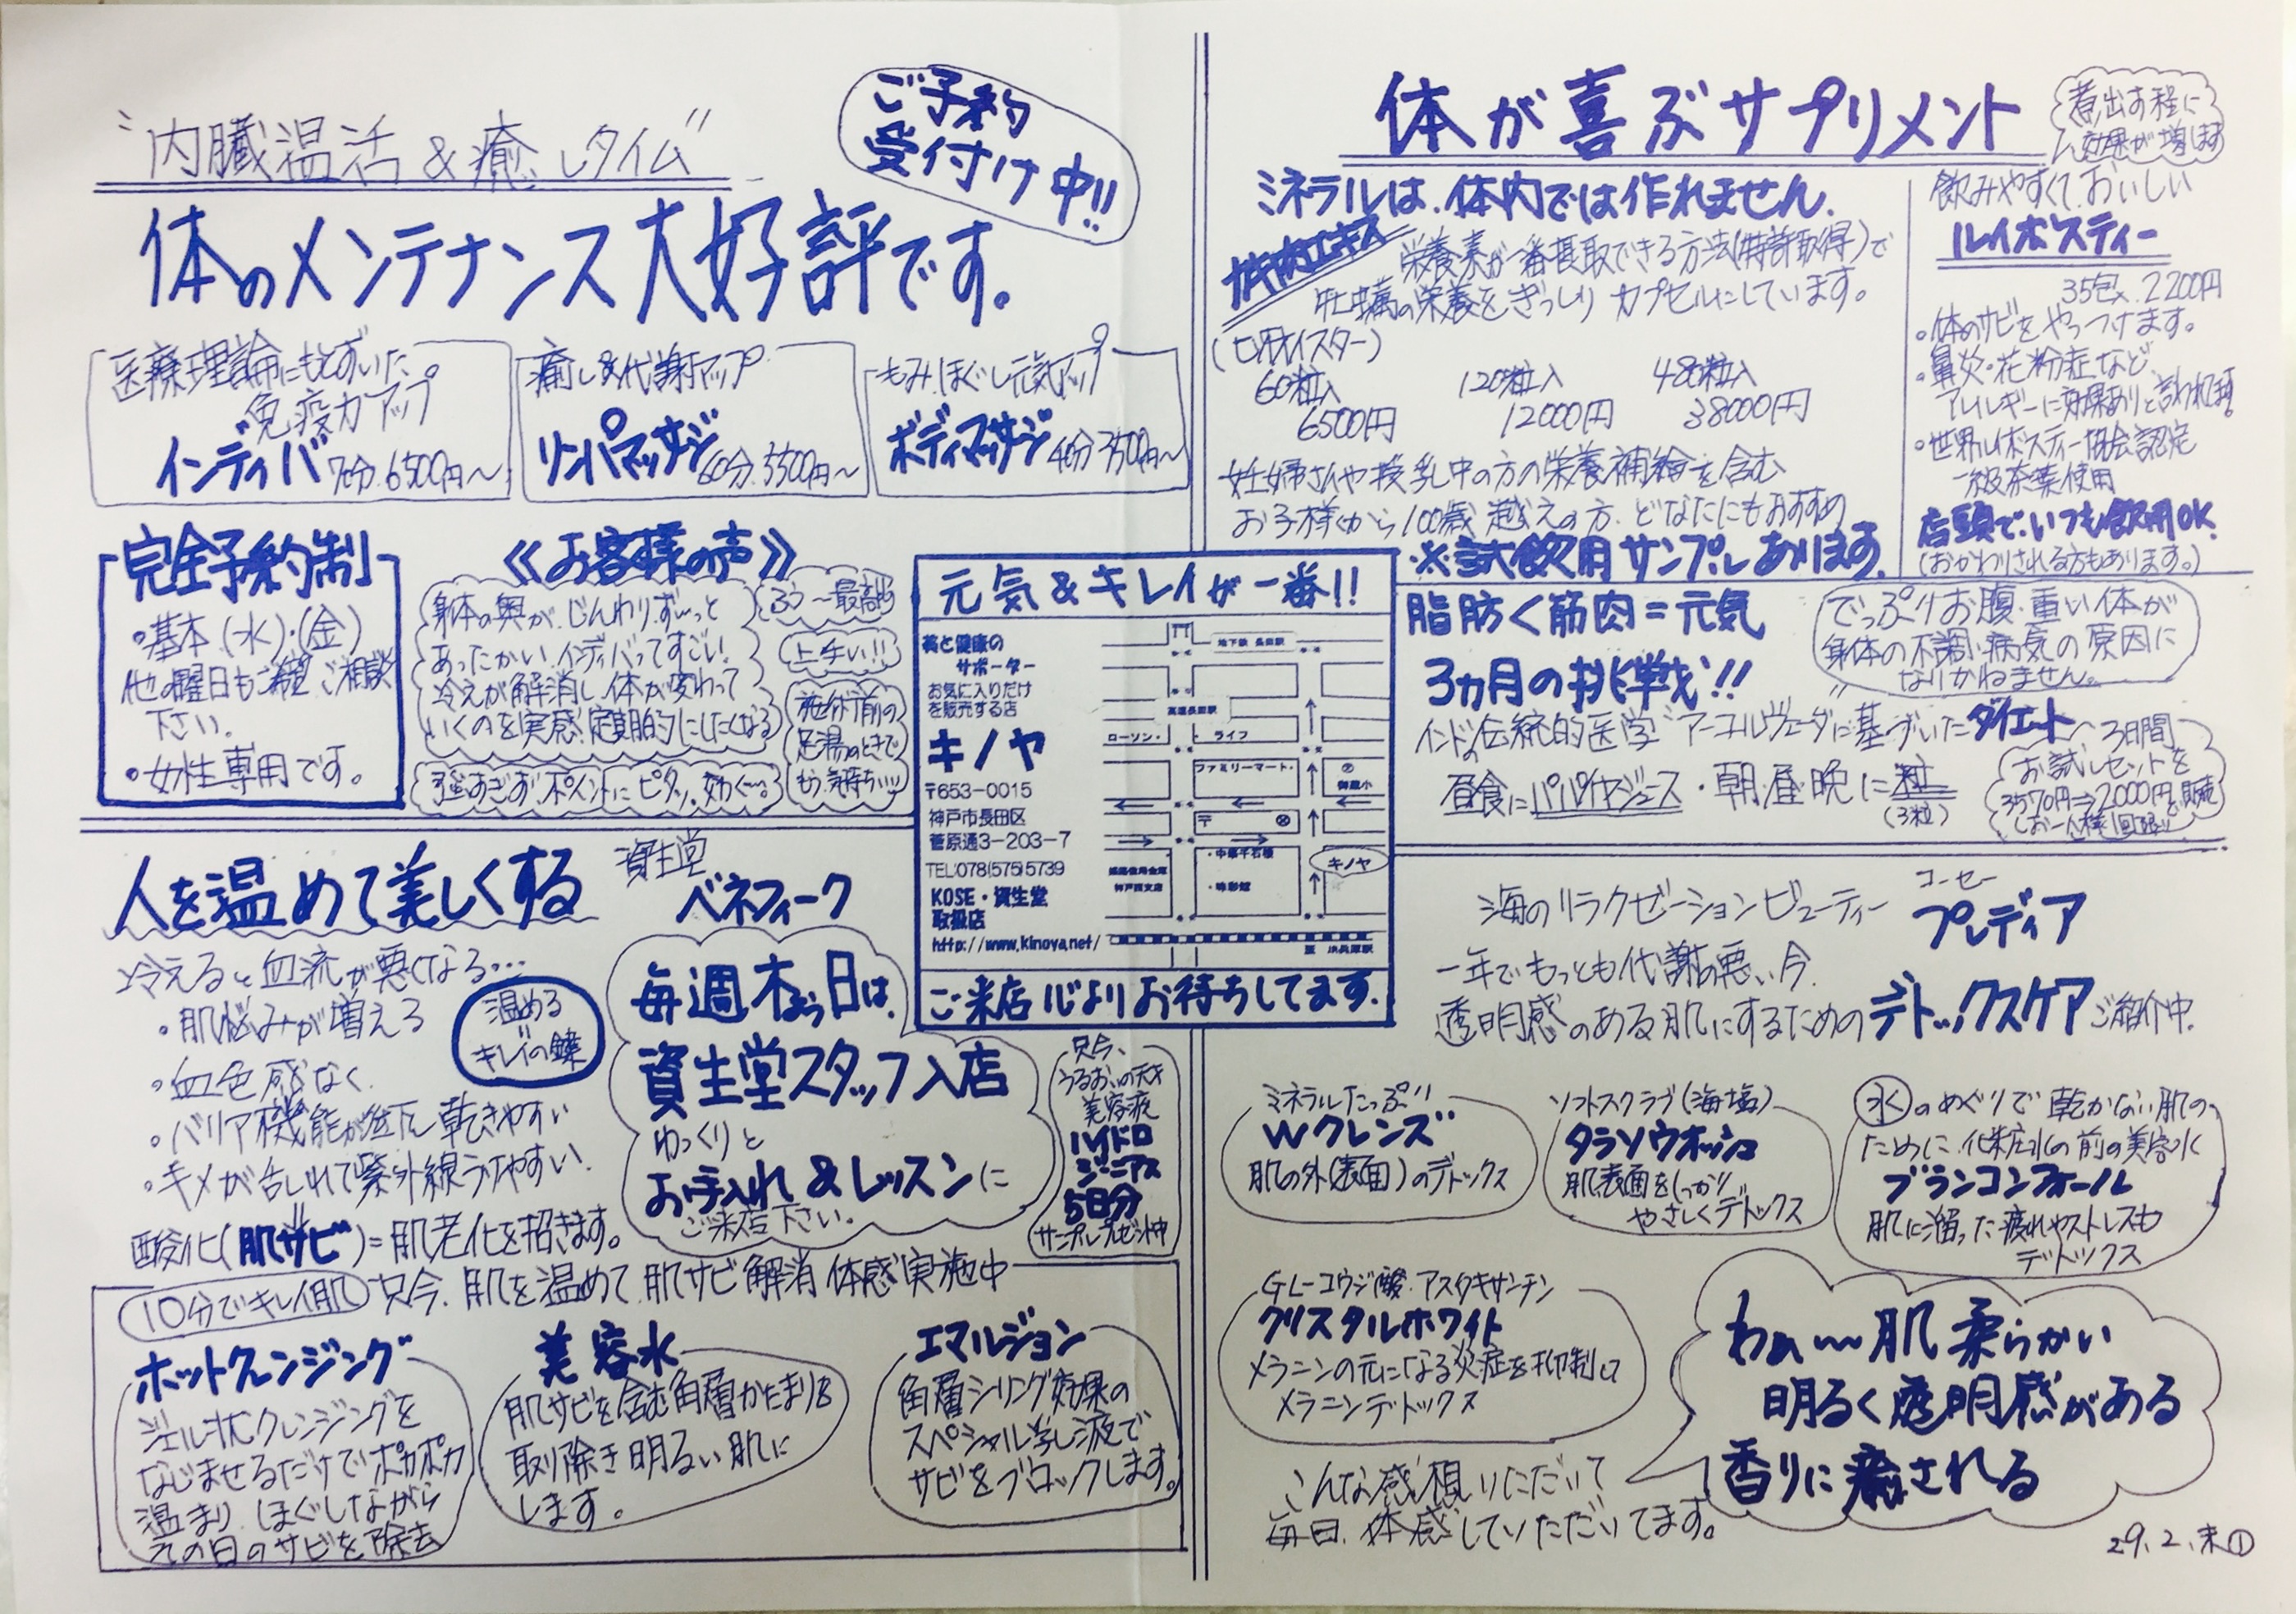 "内臓温活&癒しタイム"
ご予約
受付け中!!
体のメンテナンス大好評です。
医療理論にもとずいた
免疫力アップ
インディバ 70分.6500円〜
癒し&代謝アップ
リンパマッサージ 60分.5500円〜
もみほぐし元気アップ
ボディマッサージ 40分3500円〜
完全予約制
・基本(水)・(金)
他の曜日もご希望ご相談
下さい.
・女性専用です。
《お客様の声》
身体の奥が、じんわりずーっと
あったかい.インディバってすごい!
冷えが解消し、体が変わって
いくのを実感.定期的にしたくなる
ふう〜最高
上手い!!
施術前の
足湯のときで
もう気持ちいい
強すぎず.ポイントにピタッ.効く〜。
体が喜ぶサプリメント
煮出す程に
効果が増します
ミネラルは、体内では作れません.
カキ肉エキス
栄養素が一番摂取できる方法(特許取得)で
牡蠣の栄養をぎっしりカプセルにしています。
60粒入
6500円
120粒入
12000円
480粒入
38000円
妊婦さんや授乳中の方の栄養補給を含む
お子様から100歳越えの方.どなたにもおすすめ
※試飲用サンプルあります.
飲みやすくておいしい
ルイボスティー
35包入.2200円
・体のサビをやっつけます。
・鼻炎・花粉症など
アレルギーに効果ありと言われてます。
・世界ルイボスティー協会認定
一級茶葉使用
店頭で、いつも飲用OK.
(おかわりされる方もあります。)
元気&キレイが一番!!
美と健康の
サポーター
お気に入りだけ
を販売する店
キノヤ
〒653-0015
神戸市長田区
菅原通3-203-7
TEL078(575)5739
KOSE・資生堂
取扱店
http://www.kinoya.net/
地下鉄 長田駅
高速長田駅
ローソン・
・ライフ
ファミリーマート・
御蔵小
〒
・中華千石楼
・味彩館
神戸西支店
キノヤ
至 JR兵庫駅
ご来店心よりお待ちしてます.
脂肪<筋肉=元気
3カ月の挑戦!!
でっぷりお腹.重い体が
身体の不調.病気の原因に
なりかねません。
インドの伝統的医学"アーユルヴェーダ"に基づいたダイエット
昼食にパパイヤジュース・朝.昼.晩に粒
(3粒)
3日間
お試しセットを
3570円⇒2000円で販売
しお一人様1回限り
人を温めて美しくする
冷えると血流が悪くなる…
・肌悩みが増える
・血色感なく.
・バリア機能が低下し乾きやすい
・キメが乱れて紫外線うけやすい.
温める
キレイの鍵
酸化(肌サビ)=肌老化を招きます。
資生堂
ベネフィーク
毎週木よう日は、
資生堂スタッフ入店
ゆっくりと
お手入れ&レッスンに
ご来店下さい.
只今、
うるおいの天才
美容液
ハイドロ
ジーニアス
5日分
サンプルプレゼント中
10分でキレイ肌 只今.肌を温めて.肌サビ解消体感実施中
ホットクレンジング
ジェル状クレンジングを
なじませるだけでポカポカ
温まり、ほぐしながら
その日のサビを除去
美容水
肌サビを含む角層かたまりを
取り除き明るい肌に
します。
エマルジョン
角層シーリング効果の
スペシャル乳液で
サビをブロックします。
海のリラクゼーションビューティー
コーセー
プレディア
一年でもっとも代謝の悪い今.
透明感のある肌にするためのデトックスケアご紹介中.
ミネラルたっぷり
Wクレンズ
肌の外(表面)のデトックス
ソフトスクラブ(海塩)
タラソウオッシュ
肌表面をしっかり
やさしくデトックス
水のめぐりで乾かない肌の
ために.化粧水の前の美容水
ブランコンフォール
肌に溜った疲れやストレスも
デトックス
GL-コウジ酸.アスタキサンチン
クリスタルホワイト
メラニンの元になる炎症を抑制し
メラニンデトックス
わぁ〜〜肌柔らかい
明るく透明感がある
香りに癒される
こんな感想いただいて
毎日.体感していただいてます。
29.2.末①